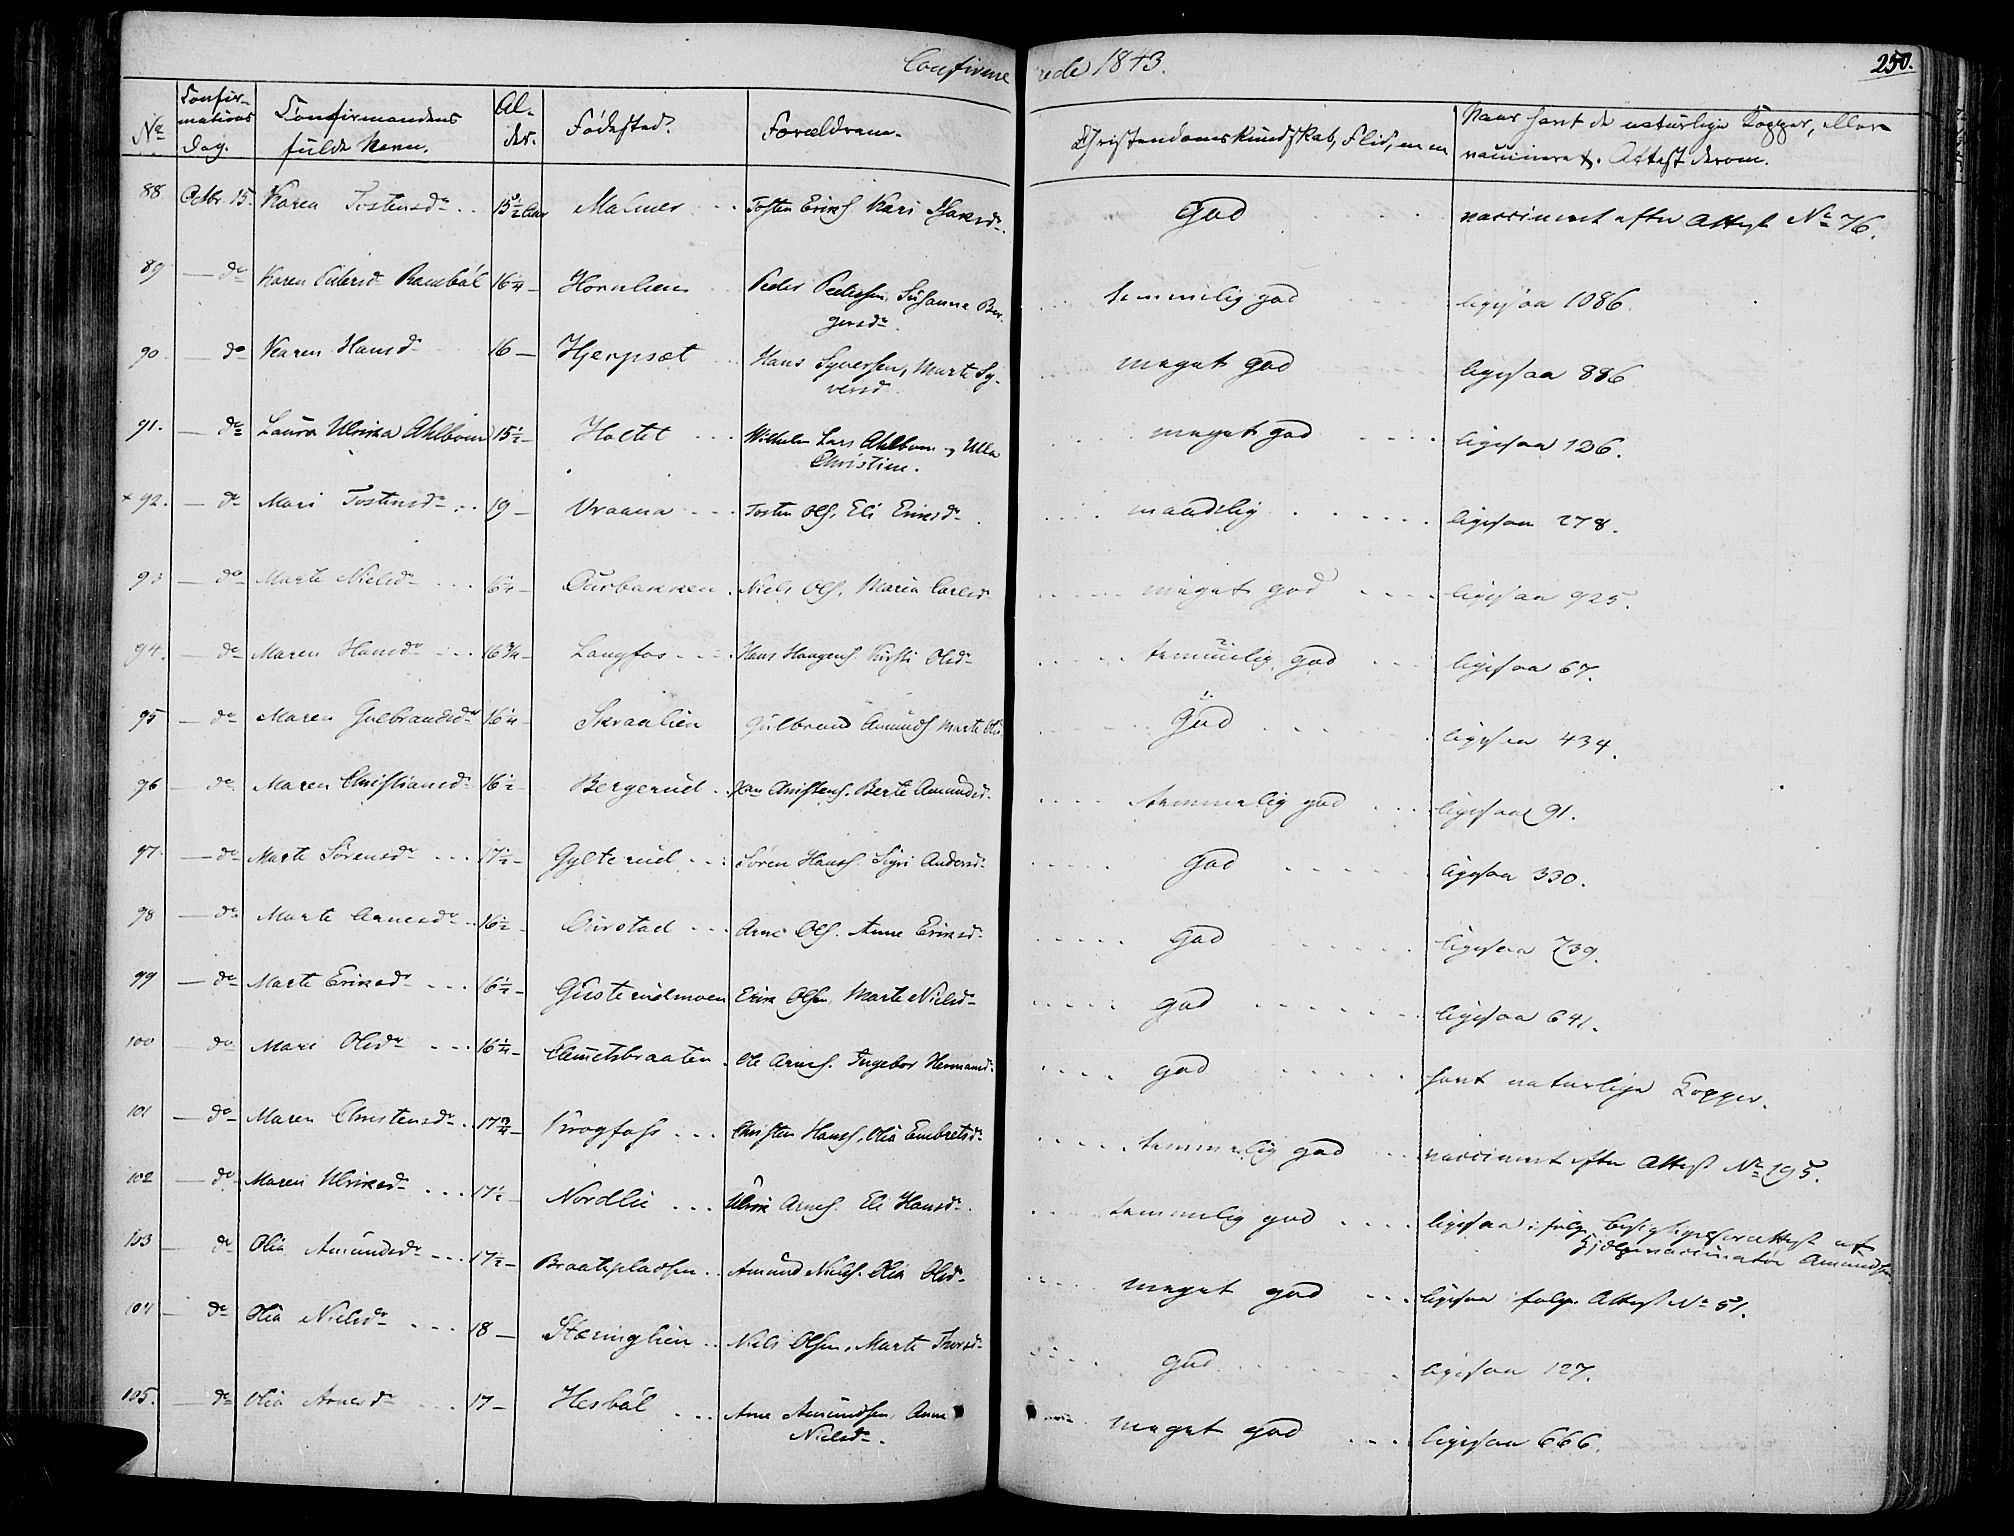 Confirmerede 1843.
250.
No Confirmations Dag. Confirmandens fulde Navn. Alder. Fødested. Forældrene. Christendomskundskab, Flid, m m Naar havt de naturlige Kopper, eller vaccineret. Attest derom.
88 Octbr. 15. Karen Tostensdr 15½ Aar Malmer Tosten Eriks. Kari Isaksdr. god vaccineret efter Attest No 76.
89 — do Karen Pedersd Rambøl 16¼ — Hornlien Peder Pedersen, Susanna Bergersdr. temmelig god ligesaa 1086.
90. — do Karen Hansdr 16 — Hjerpset Hans Syversen, Marte Syversd. meget god ligesaa 886
91. — do Laura Ulrika Ahlbom 15½ — Holtet Wilhelm Lars Ahlbom og Ulla Christine. meget god ligesaa 126.
+ 92. — do Mari Tostensdr 19 — Vraana Tosten Ols. Eli Eriksdr maadelig ligesaa 278.
93 — do Marte Nielsdr Ourbakken Niels Ols. Maria Carlsd meget god ligesaa 925.
94. — do Maren Hansdr 16¾ — Langfos Hans Haagens. Kirsti Olsdr temmelig god ligesaa 67.
95 — do Maren Gulbrandsdr 16¼ Skraalien Gulbrand Amunds. Marte Ols god ligesaa 434.
96 — do Maren Christiansdr 16½ Bergerud Berte Amundsd. temmelig god ligesaa 91.
97. — do Marte Sørensdr 17½ — Gylterud Søren Hans. Sigri Andersd. god ligesaa 330.
98 — do Marte Arnesdr 16½ — Ourstad Arne Ols. Anne Eriksdr god ligesaa 739.
99 — do Marte Eriksdr 16½ — Gusterudmoen Erik Olsen Marte Nielsdr god ligesaa 641.
100 — do Mari Olsdr 16¼ — Ole Arnes. Ingebor Hermansd. god havt naturlige Kopper.
101 — do Maren Christensdr 17¾ — Krogfoss Christen Hans. Olia Embretsd. temmelig god vaccineret efter Attest No 195.
102 — do Maren Ulriksdr 17½ — Nordlie Ulrik Arnes. Eli Hansdr. temmelig god ligesaa ifølge af Hjelpevaccinatør Amundsen
103 — do Olia Amundsdr 17½ — Braatepladsen Amund Niels. Olia Olsd meget god ligesaa følge Attest No 51.
104 — do Olia Nielsdr 18 — Stæringlien Niels Olsen, Marte Thorsd god ligesaa 127.
105. — do Olia Arnesdr 17 — Hesbøl Arne Amundsen Anne Nielsdr. meget god ligesaa 666.